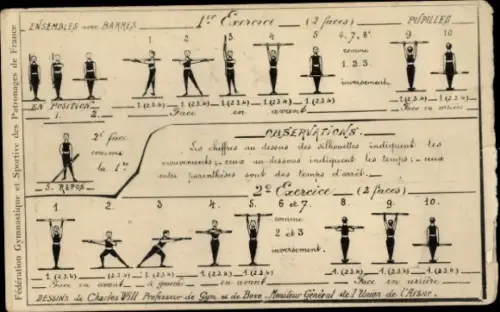 Fédération Gymnastique et Sportive des Patronages de France
ENSEMBLES avec BARRES 1er Exercice (2 faces) PUPILLES
1 2 3 4 5 6, 7, 8e 9 10
comme
1. 2. 3.
inversement.
1. (2.3.4) 1. (2.3.4) 1. (2.3.4) 1. (2.3.4) 1. (2.3.4) 1. (2.3.4) 1. (2.3.4)
EN POSITION Face en avant Face en arrière
1. 2.
2e face
comme
la 1re
3. REPOS
OBSERVATIONS.
Les chiffres au dessus des silhouettes indiquent les
mouvements, ceux au dessous indiquent les temps; ceux
entre parenthèses sont des temps d'arrêt.
2e Exercice (2 faces)
1 2. 3. 4. 5. 6 et 7. 8. 9. 10.
comme
2 et 3
inversement.
1. (2.3.4) (2.3.4) 1. (2.3.4) 1. (2.3.4) 1. (2.3.4) 1. (2.3.4) 1. (2.3.4) 1. (2.3.4)
Face en avant à gauche en avant Face en arrière
DESSINS de Charles Will Professeur de Gym et de Boxe. Moniteur Général de l'Union de l'Aisne.